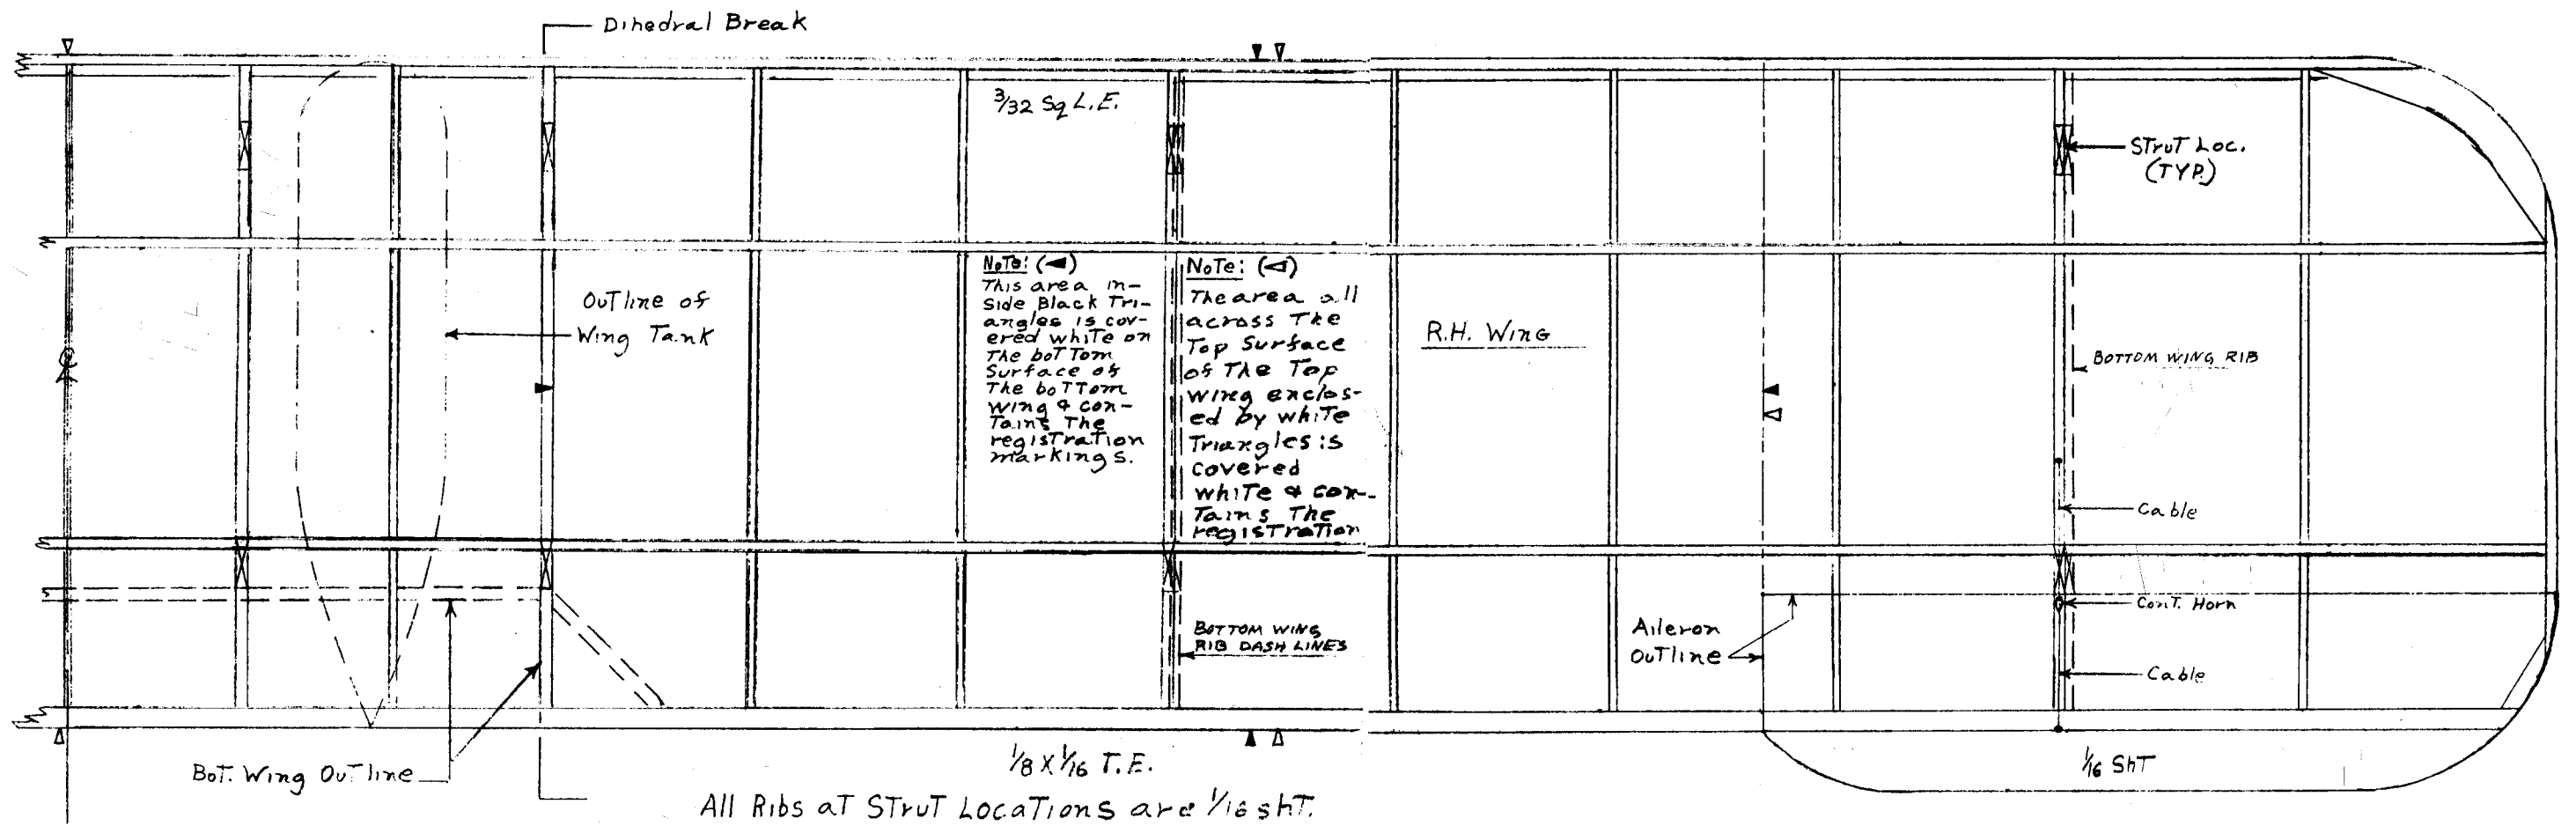 Dihedral Break
3/32 Sq L.E.
STruT Loc.
(TYP.)
OuTline of
Wing Tank
NoTe: (◄)
This area in-
Side Black Tri-
angles is cov-
ered white on
The boTTom
Surface of
The boTTom
wing & con-
Tains The
regisTraTion
markings.
NoTe: (◁)
The area all
across The
Top Surface
of The Top
wing enclos-
ed by white
Triangles is
covered
whiTe & con-
Tains The
regisTraTion
R.H. Wing
BOTTOM WING RIB
Cable
ConT. Horn
Cable
BOTTOM WING
RIB DASH LINES
Aileron
OuTline
BoT. Wing OuTline
1/8 X 1/16 T.E.
1/16 ShT
All Ribs aT STruT LocaTions are 1/16 shT.